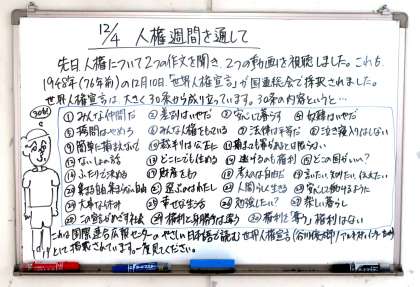 12/4 人権週間を通して
先日、人権について2つの作文を聞き、2つの動画を視聴しました。これも
1948年(76年前)の12月10日、「世界人権宣言」が国連総会で採択されました。
世界人権宣言は、大きく30条から成り立っています。30条の内容というと…
30個!
①みんな仲間だ ②差別はいやだ ③安心して暮らす ④奴隷はいやだ
⑤拷問はやめろ ⑥みんな人権もっている ⑦法律は平等だ ⑧泣き寝入りはしない
⑨簡単に捕まえないで ⑩裁判は公正に ⑪捕まっても罪があるとは限らない
⑫ないしょの話 ⑬どこにでも住める ⑭逃げるのも権利 ⑮どこの国がいい?
⑯ふたりで決める ⑰財産をもつ ⑱考えるのは自由だ ⑲言いたい、知りたい、伝えたい
⑳集まる自由、集まらない自由 ㉑選ぶのはわたし ㉒人間らしく生きる ㉓安心して働けるように
㉔大事な休み ㉕幸せな生活 ㉖勉強したい? ㉗楽しい暮らし
㉘この宣言がめざす社会 ㉙権利と身勝手は違う ㉚権利を「奪う」権利はない
これは国際連合広報センターのやさしい日本語で読む世界人権宣言(谷川俊太郎/アムネスティ
として掲載されています。一度見てください。